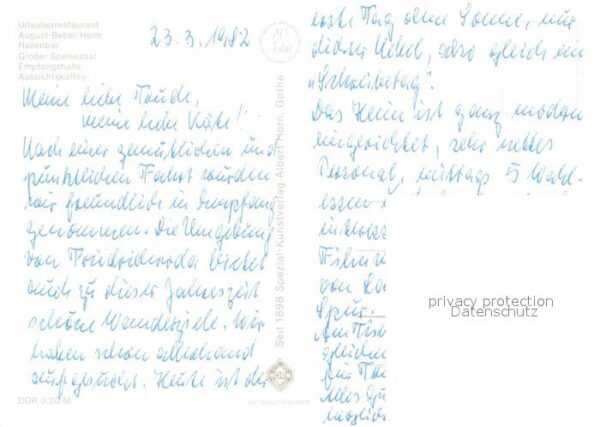 Urlauberrestaurant
August-Bebel-Heim
Hallenbar
Großer Speisesaal
Empfangshalle
Aussichtskaffee
23.3.1982
Meine liebe Trude,
meine liebe Käte!
Nach einer gemütlichen und
pünktlichen Fahrt wurden
wir freundlich in Empfang
genommen. Die Umgebung
von Friedrichroda bietet
auch zu dieser Jahreszeit
schöne Wanderziele. Wir
haben schon allerhand
aufgesucht. Heute ist der
DDR 0,20 M
Seit 1898 Spezial-Kunstverlag Albert Horn, Gotha
HORN
erste Tag ohne Sonne, nur
dicker Nebel, also gleich ein
"Schreibetag".
Das Heim ist ganz modern
eingerichtet, sehr nettes
Personal, mittags 5 Wahl-
essen
Spur.
Am Tisc
gleichen
Alles Gu
herzlich
privacy protection
Datenschutz